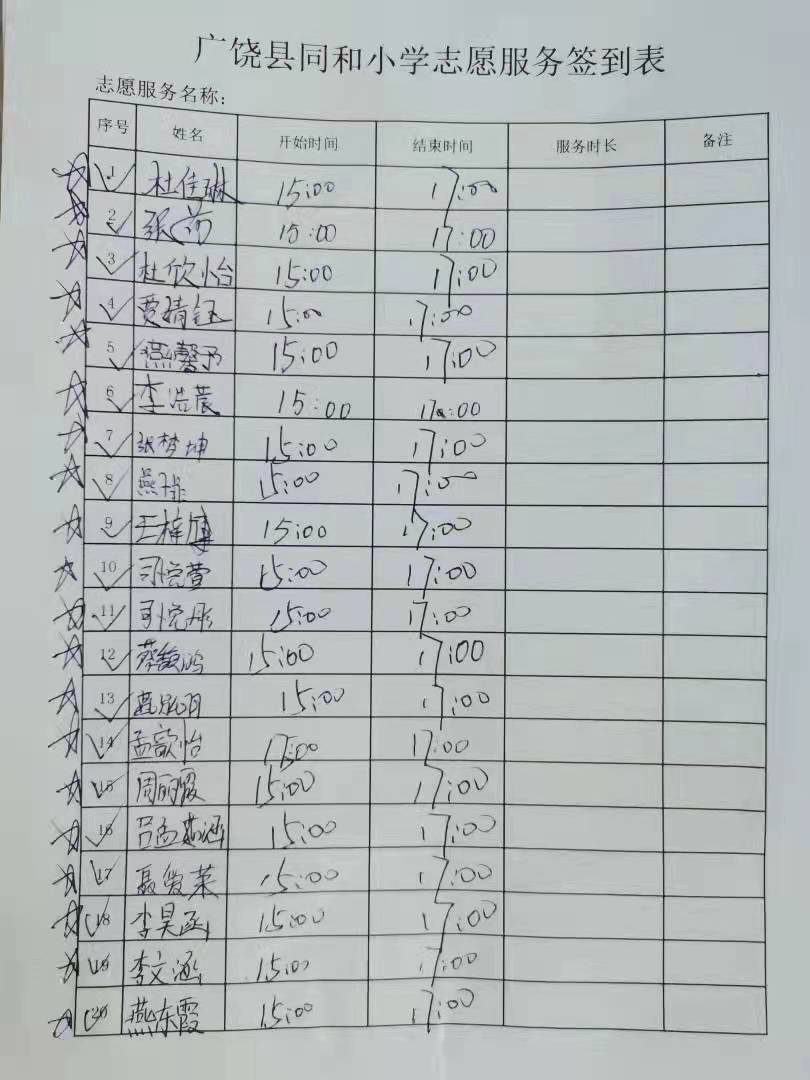 广饶县同和小学志愿服务签到表
志愿服务名称：
序号 姓名 开始时间 结束时间 服务时长 备注
1 杜佳琳 15:00 17:00
2 张 15:00 17:00
3 杜欣怡 15:00 17:00
4 贾靖钰 15:00 17:00
5 燕馨予 15:00 17:00
6 李浩晨 15:00 17:00
7 张梦坤 15:00 17:00
8 燕 15:00 17:00
9 王梓博 15:00 17:00
10 司悦萱 15:00 17:00
11 司悦彤 15:00 17:00
12 蔡馥鸿 15:00 17:00
13 15:00 17:00
14 孟歆怡 17:00
15 周丽霞 15:00 17:00
16 吕孟茹涵 15:00 17:00
17 聂爱莱 15:00 17:00
18 李昊函 15:00 17:00
19 李文涵 15:00 17:00
20 燕东霞 15:00 17:00